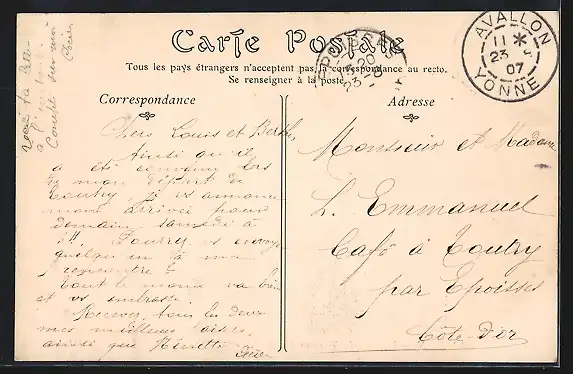 Carte Postale
Tous les pays étrangers n'acceptent pas la correspondance au recto.
Se renseigner à la poste.
Correspondance
Adresse
AVALLON
11 *
23 5
07
YONNE
20
23
Chers Louis et Berthe
Ainsi qu'il
a été convenu lors
de mon départ de
Toutry, je vs annonce
mon arrivée pour
demain samedi à
Pourrez vs envoyer
quelqu'un à ma
rencontre ?
Tout le monde va bien
et vs embrasse.
Recevez tous les deux
mes meilleurs baisers
ainsi que Ninette
Monsieur et Madame
L. Emmanuel
Café à Toutry
par Epoisses
Côte-d'or